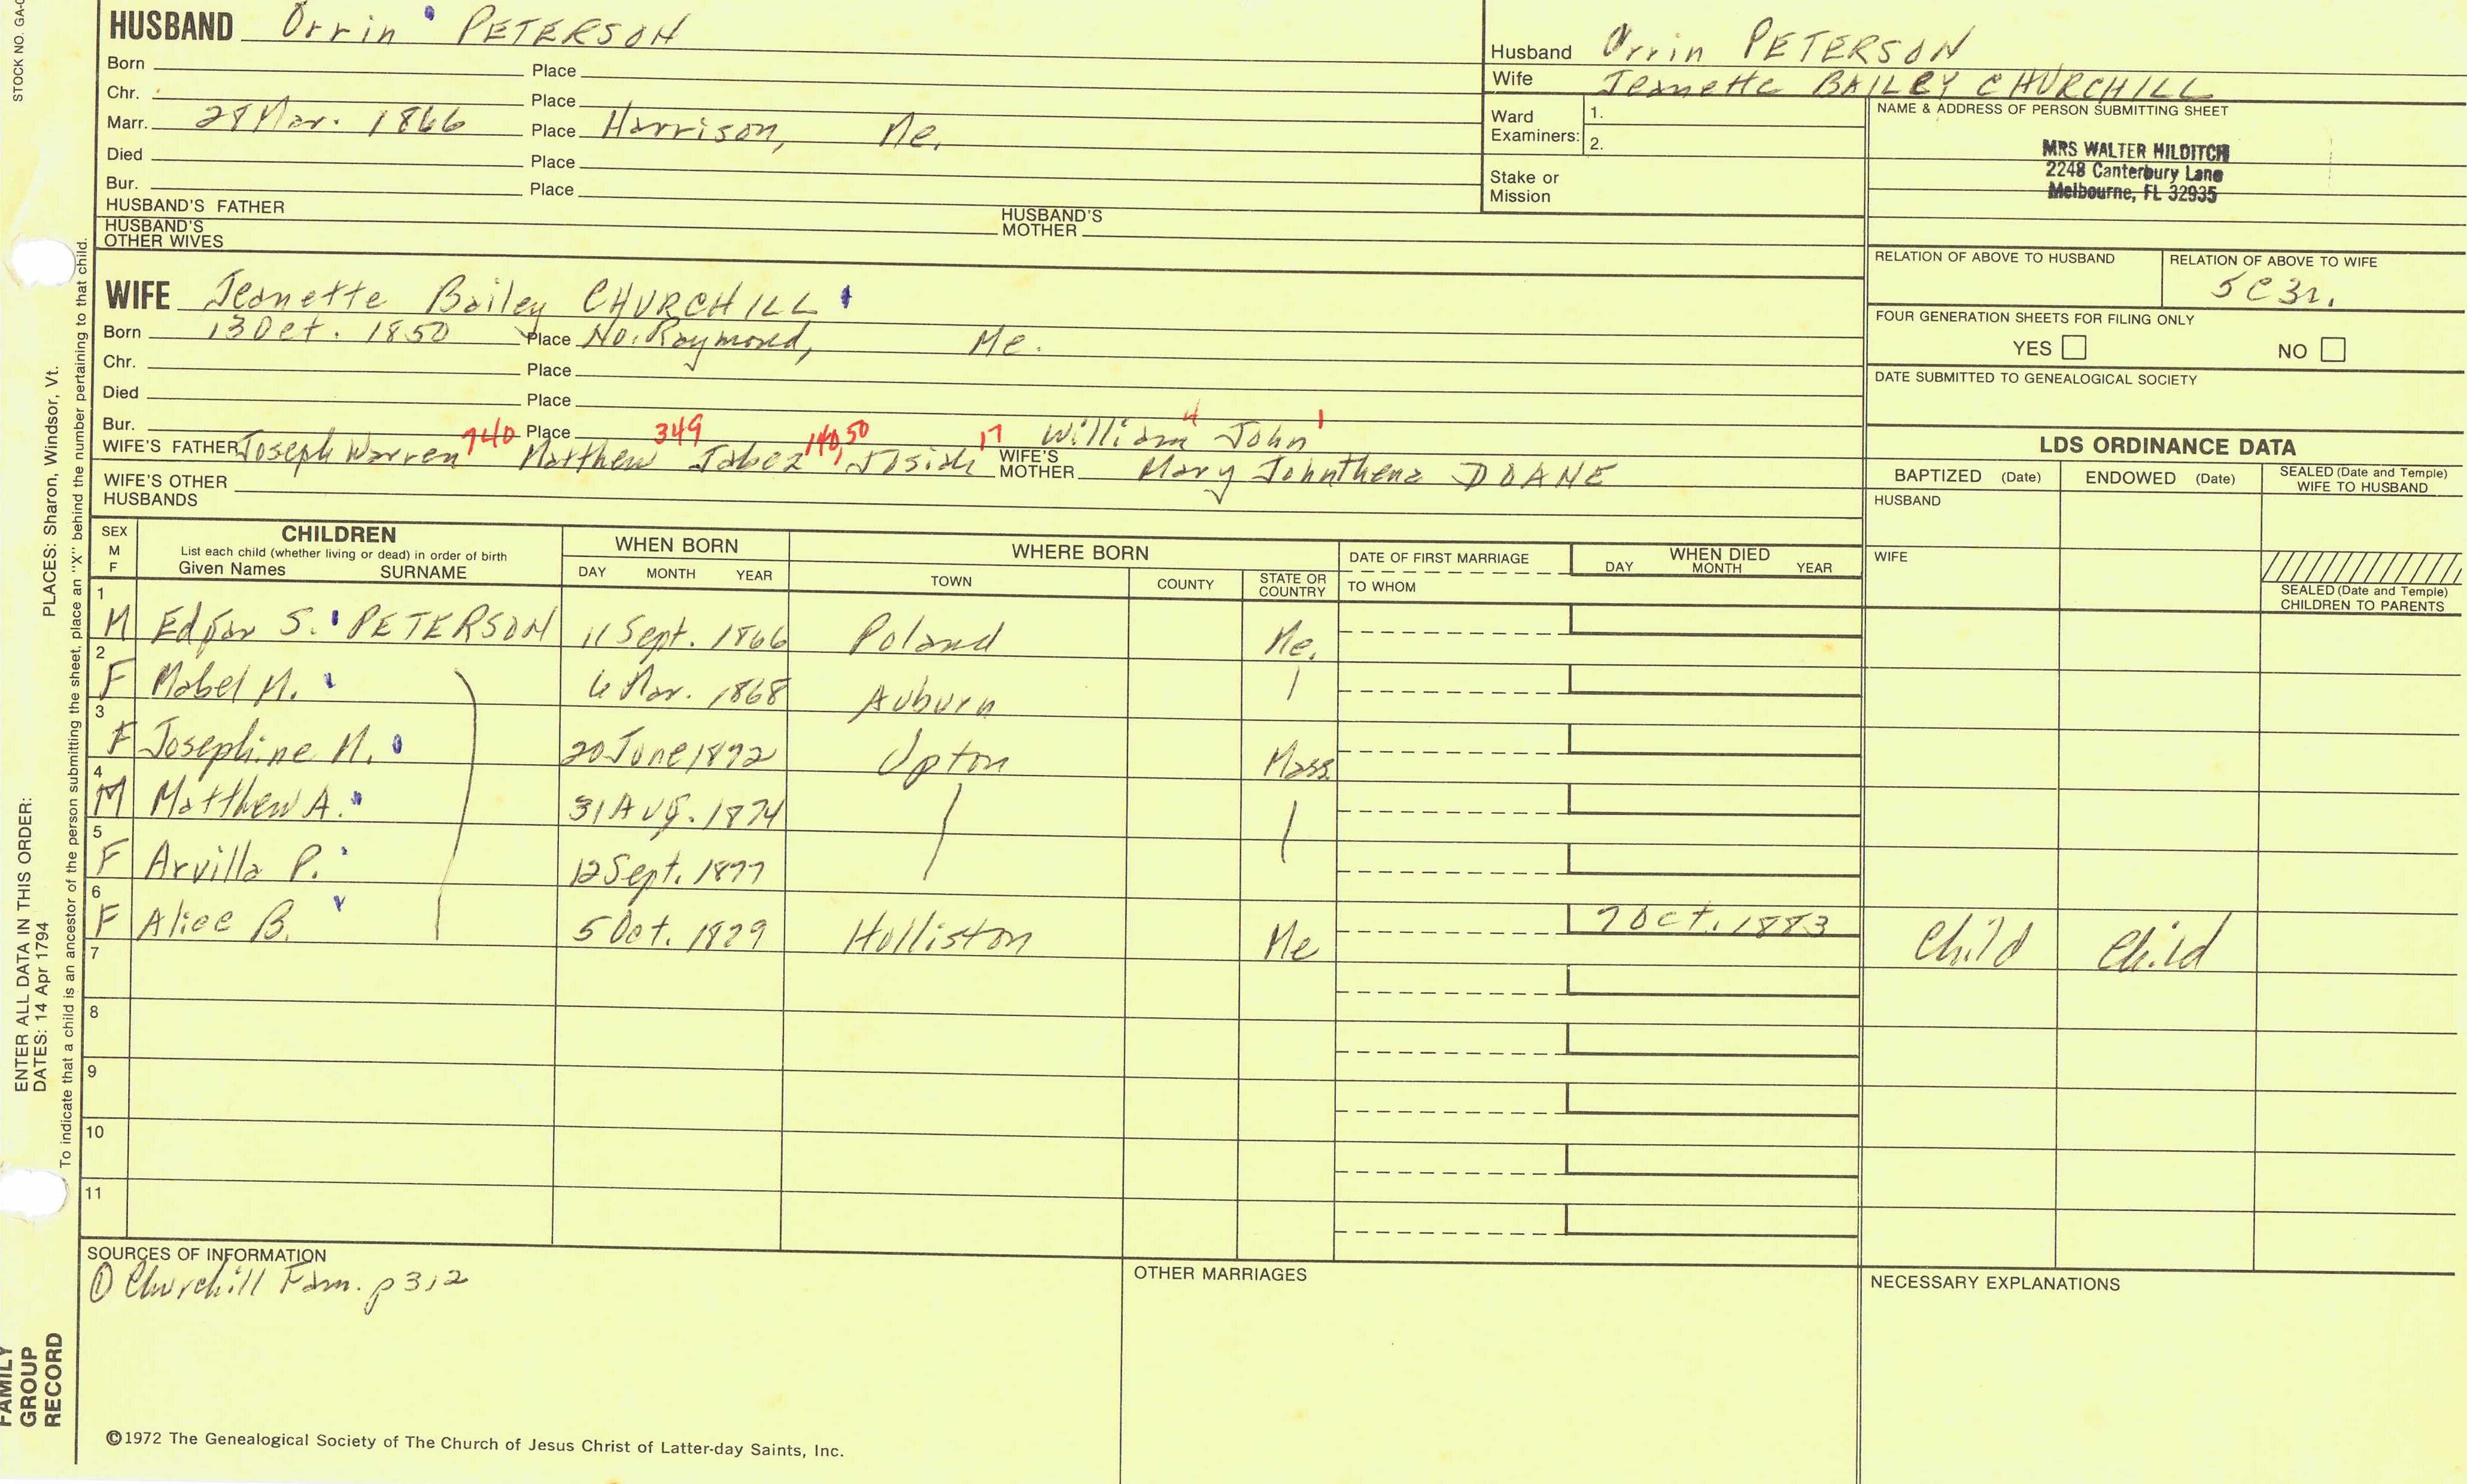 STOCK NO. GA-
HUSBAND Orrin PETERSON
Born Place
Chr. Place
Marr. 28 Mar. 1866 Place Harrison, Me.
Died Place
Bur. Place
HUSBAND'S FATHER HUSBAND'S MOTHER
HUSBAND'S OTHER WIVES
Husband Orrin PETERSON
Wife Jeanette BAILEY CHURCHILL
Ward Examiners: 1.
2.
Stake or Mission
NAME & ADDRESS OF PERSON SUBMITTING SHEET
MRS WALTER HILDITCH
2248 Canterbury Lane
Melbourne, FL 32935
RELATION OF ABOVE TO HUSBAND RELATION OF ABOVE TO WIFE
5C3r.
FOUR GENERATION SHEETS FOR FILING ONLY
YES NO
DATE SUBMITTED TO GENEALOGICAL SOCIETY
WIFE Jeanette Bailey CHURCHILL
Born 13 Oct. 1850 Place No. Raymond, Me.
Chr. Place
Died Place
Bur. Place
740 349 140, 50 17 William 4 John 1
WIFE'S FATHER Joseph Warren Matthew Jabez, Josiah WIFE'S MOTHER Mary Johnthena DOANE
WIFE'S OTHER HUSBANDS
LDS ORDINANCE DATA
BAPTIZED (Date) ENDOWED (Date) SEALED (Date and Temple) WIFE TO HUSBAND
HUSBAND
WIFE
SEALED (Date and Temple) CHILDREN TO PARENTS
SEX M F CHILDREN List each child (whether living or dead) in order of birth Given Names SURNAME
WHEN BORN DAY MONTH YEAR
WHERE BORN TOWN COUNTY STATE OR COUNTRY
DATE OF FIRST MARRIAGE TO WHOM
WHEN DIED DAY MONTH YEAR
1 M Edgar S. PETERSON 11 Sept. 1866 Poland Me.
2 F Mabel M. 6 Mar. 1868 Auburn
3 F Josephine M. 20 June 1872 Upton Mass.
4 M Matthew A. 31 Aug. 1874
5 F Arvilla P. 12 Sept. 1877
6 F Alice B. 5 Oct. 1879 Holliston Me 7 Oct. 1883 Child Child
7
8
9
10
11
SOURCES OF INFORMATION
① Churchill Fam. p 312
OTHER MARRIAGES
NECESSARY EXPLANATIONS
©1972 The Genealogical Society of The Church of Jesus Christ of Latter-day Saints, Inc.
FAMILY GROUP RECORD
ENTER ALL DATA IN THIS ORDER:
DATES: 14 Apr 1794
PLACES: Sharon, Windsor, Vt.
To indicate that a child is an ancestor of the person submitting the sheet, place an "X" behind the number pertaining to that child.